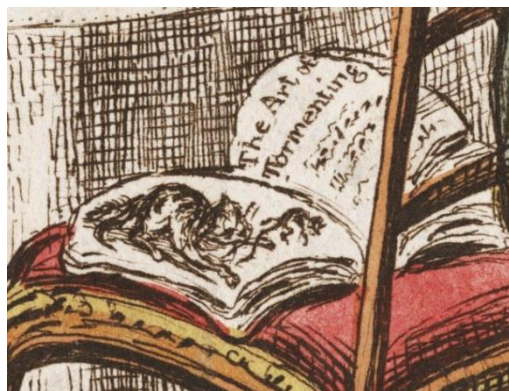 The Art of
Tormenting